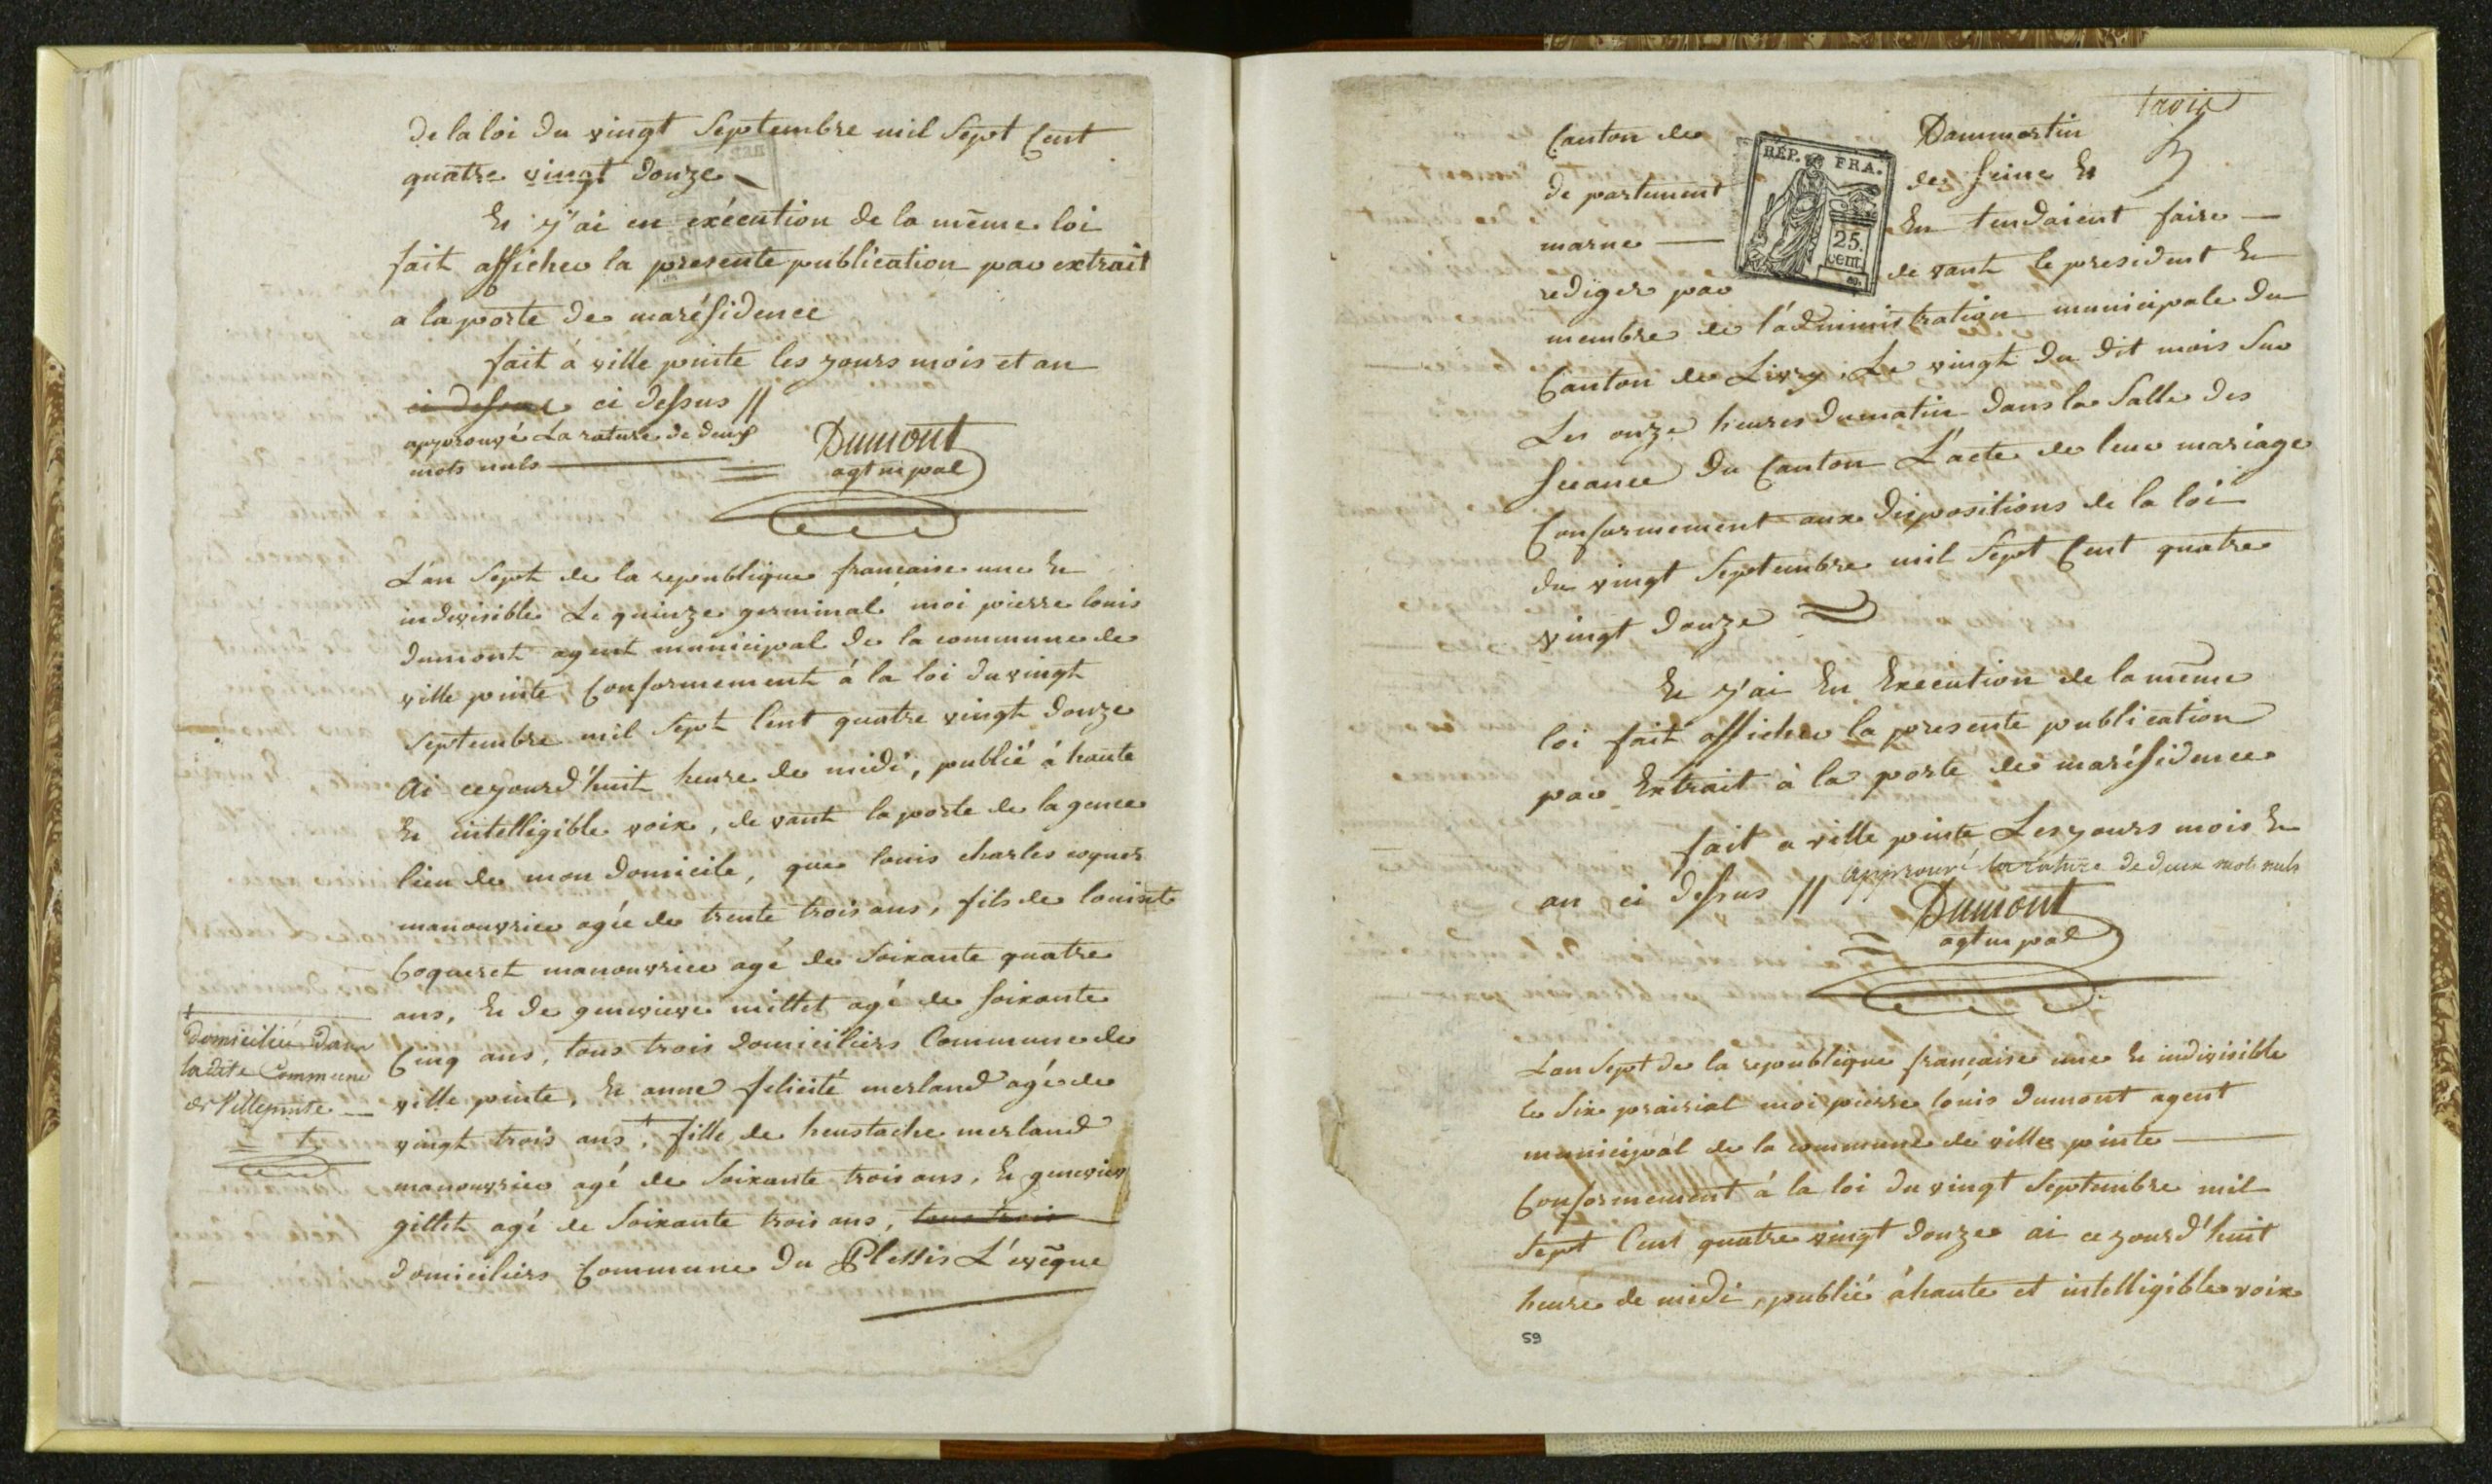 de la loi du vingt Septembre mil Sept Cent
quatre vingt douze
Et j'ai en exécution de la même loi
fait afficher la presente publication par extrait
a la porte de marésidence
fait á ville pinte les jours mois et an
ci dessus ci dessus //
approuvé La rature de deux
mots nuls
Dumont
agt mpal
L'an Sept de la republique francaise une Et
indivisible Le quinze germinal moi pierre louis
dumont agent municipal de la commune de
ville pinte Conformement á la loi du vingt
Septembre mil Sept Cent quatre vingt douze
Ai cejourd'huit heure de midi, publié á haute
Et intelligible voix, de vant la porte de lagence
lieu de mon domicile, que louis charles
manouvrier agée de trente trois ans, fils de louis
Coqueret manouvrier agé de Soixante quatre
ans, Et de genevieve millet agé de Soixante
Cinq ans, tous trois domiciliers Commune de
ville pinte, Et anne felicité merland agé de
vingt trois ans +, fille de heustache merland
manouvrier agé de Soixante trois ans, Et geneviev
gillet agé de Soixante trois ans, tous trois
domiciliers Commune du Plessis L'evêque
+
domiciliée dans
ladite Commune
de Villepinte
tavis
Canton de Dammartin
de partement de Seine Et
marne En tendaient faire
rediger par de vant le president Et
RÉP. FRA.
25.
cent.
membre de l'administration municipale du
Canton de Livry, Le vingt du dit mois Sur
Les onze heures dumatin dans la Salle des
Seeance du Canton L'acte de leur mariage
Conformement aux dispositions de la loi
du vingt Septembre mil Sept Cent quatre
vingt douze
Et j'ai En Execution de la même
loi fait afficher la presente publication
par Extrait à la porte de marésidence
fait a ville pinte Les jours mois Et
an ci dessus // approuvé la rature de deux mots nuls
Dumont
agt mpal
L'an Sept de la republique francaise une Et indivisible
le Six prairial moi pierre louis dumont agent
municipal de la commune de ville pinte
Conformement á la loi du vingt Septembre mil
Sept Cent quatre vingt douze ai cejourd'huit
heure de midi, publié áhaute et intelligible voix
59